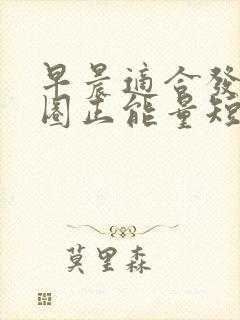 早晨適合發
圈正能量短
莫里森